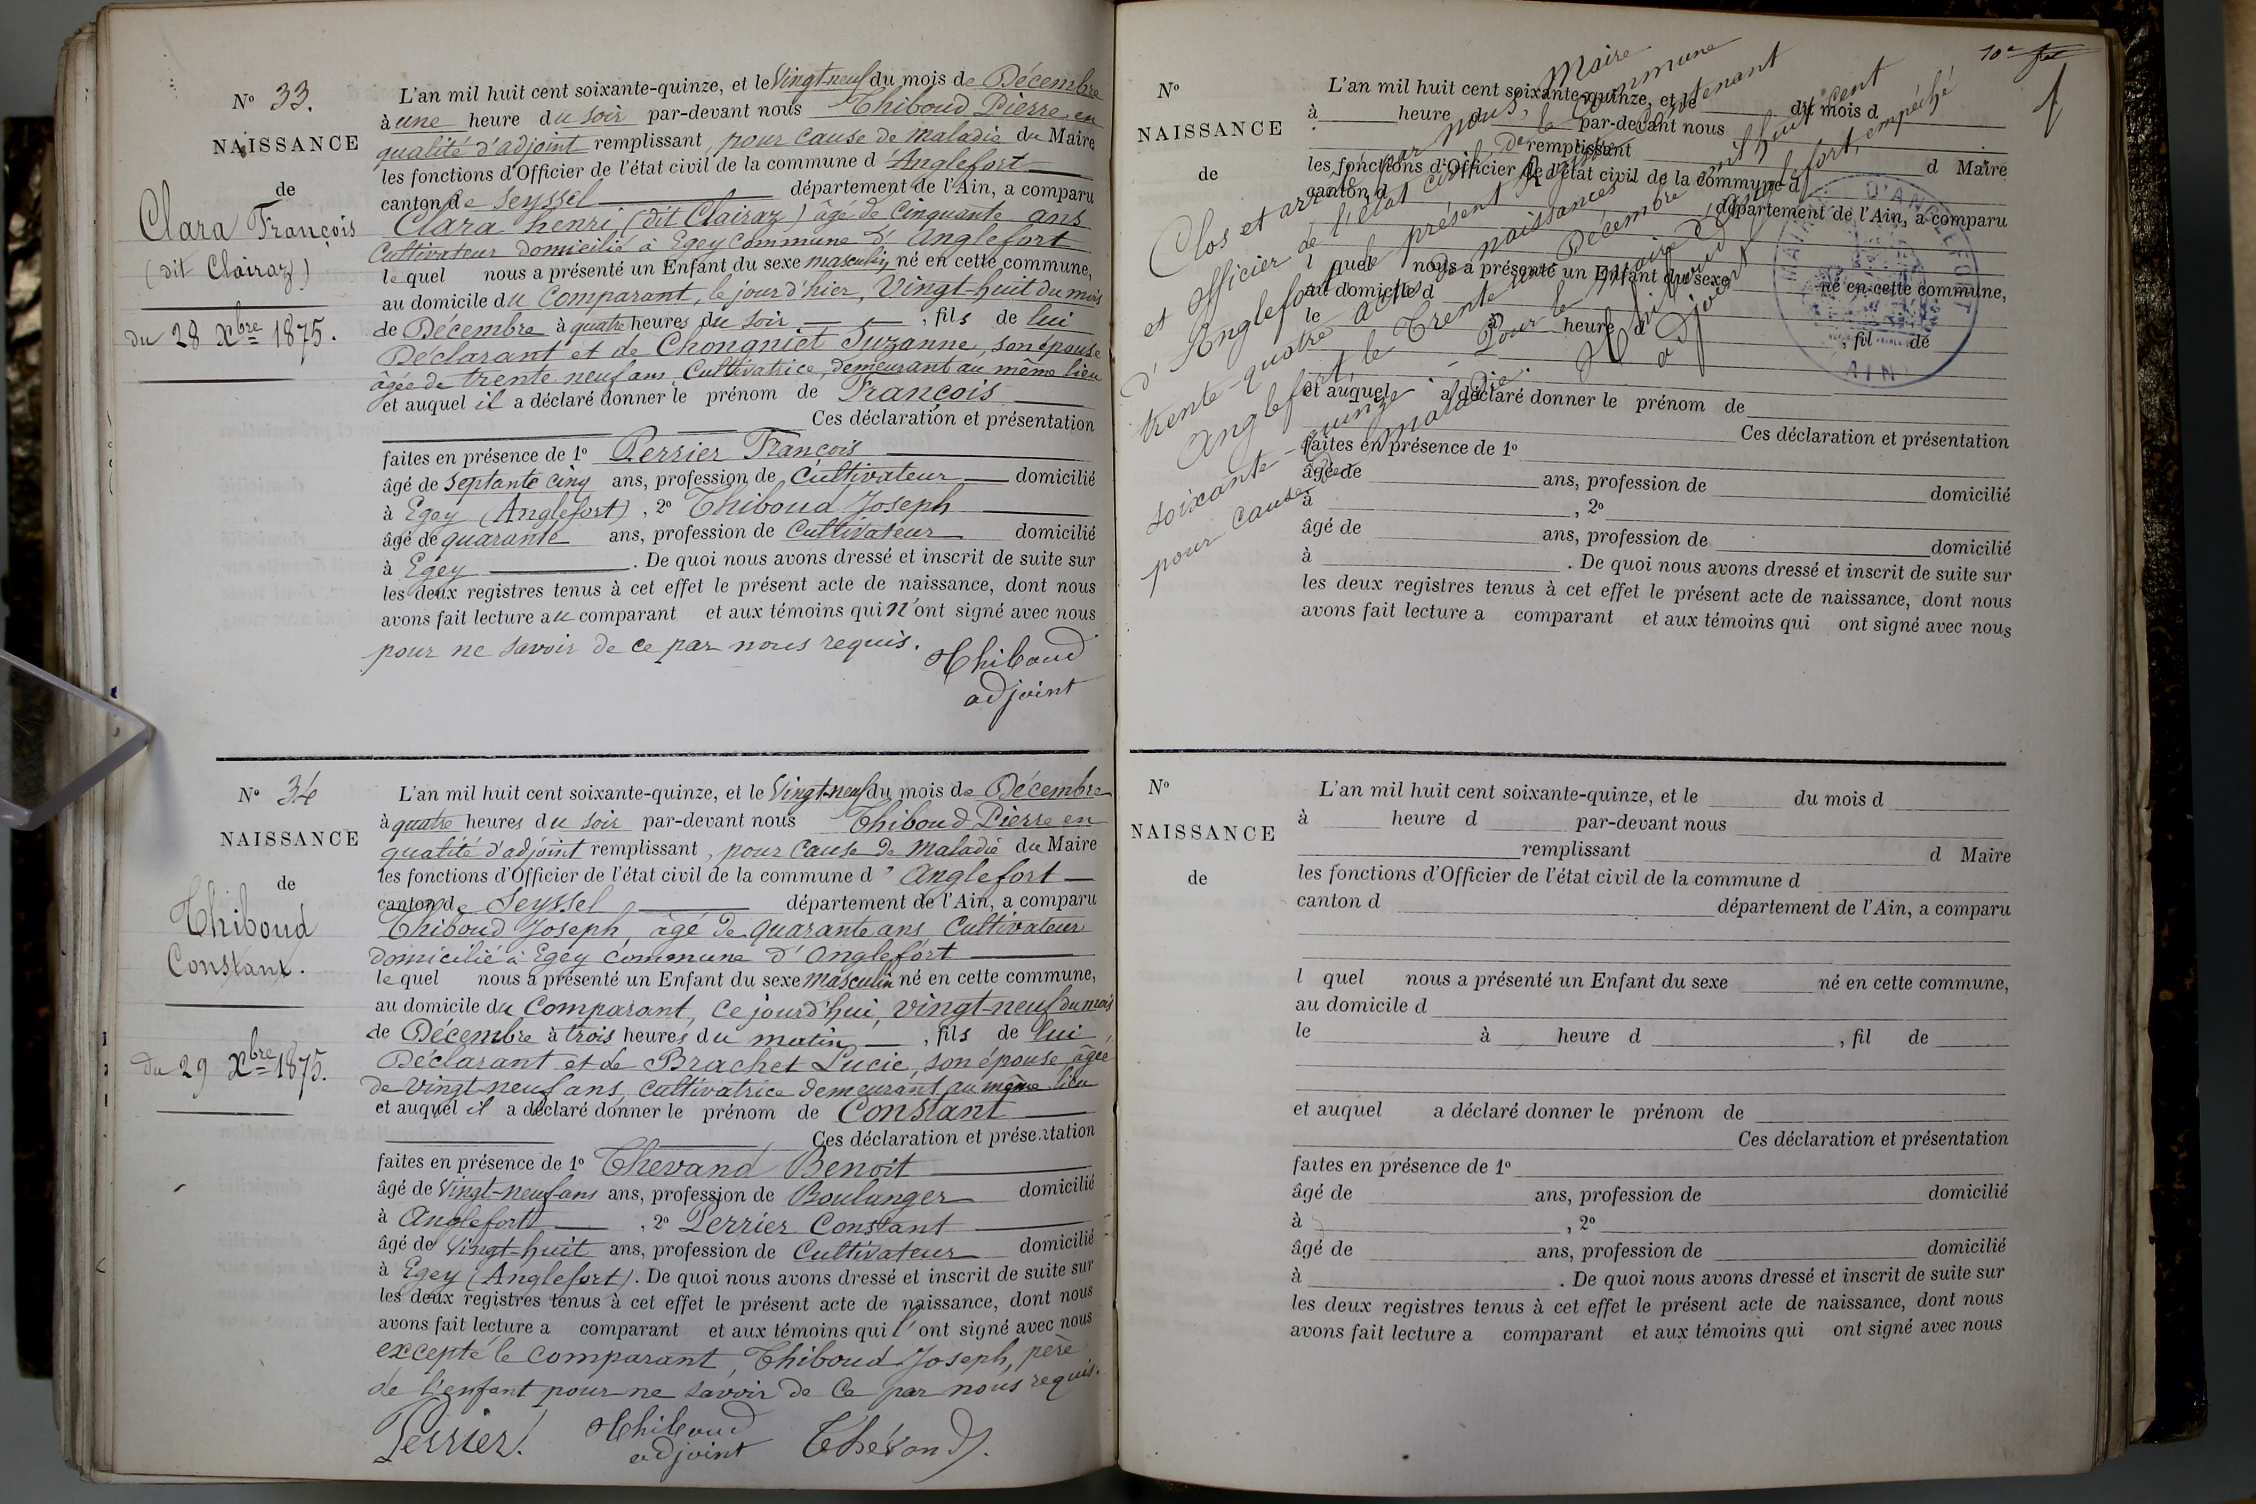 N° 33.
NAISSANCE
de
Clara François
(dit Clairaz)
du 28 Xbre 1875.
L'an mil huit cent soixante-quinze, et le Vingt-neuf du mois de Décembre
à une heure du soir par-devant nous Thiboud Pierre en
qualité d'adjoint remplissant, pour cause de maladie du Maire
les fonctions d'Officier de l'état civil de la commune d'Anglefort
canton de Seyssel département de l'Ain, a comparu
Clara henri, (dit Clairaz) âgé de Cinquante ans
Cultivateur domicilié à Egey commune d'Anglefort
lequel nous a présenté un Enfant du sexe masculin, né en cette commune,
au domicile du Comparant, le jour d'hier, Vingt-huit du mois
de Décembre à quatre heures du soir , fils de lui
Déclarant et de Chongniet Suzanne, son épouse
âgée de trente neuf ans, Cultivatrice, demeurant au même lieu
et auquel il a déclaré donner le prénom de François
Ces déclaration et présentation
faites en présence de 1° Perrier François
âgé de septante cinq ans, profession de Cultivateur domicilié
à Egey (Anglefort), 2° Thiboud Joseph
âgé de quarante ans, profession de Cultivateur domicilié
à Egey . De quoi nous avons dressé et inscrit de suite sur
les deux registres tenus à cet effet le présent acte de naissance, dont nous
avons fait lecture au comparant et aux témoins qui n'ont signé avec nous
pour ne savoir de ce par nous requis.
Thiboud
adjoint
N° 34
NAISSANCE
de
Thiboud
Constant.
du 29 Xbre 1875.
L'an mil huit cent soixante-quinze, et le Vingt-neuf du mois de Décembre
à quatre heures du soir par-devant nous Thiboud Pierre en
qualité d'adjoint remplissant, pour cause de maladie du Maire
les fonctions d'Officier de l'état civil de la commune d'Anglefort
canton de Seyssel département de l'Ain, a comparu
Thiboud Joseph, âgé de quarante ans, Cultivateur
domicilié à Egey commune d'Anglefort
lequel nous a présenté un Enfant du sexe masculin né en cette commune,
au domicile du Comparant, ce jourd'hui, vingt-neuf du mois
de Décembre à trois heures du matin , fils de lui
Déclarant et de Brachet Lucie, son épouse, âgée
de vingt-neuf ans, cultivatrice demeurant au même lieu
et auquel il a déclaré donner le prénom de Constant
Ces déclaration et présentation
faites en présence de 1° Thevand Benoit
âgé de Vingt-neuf ans ans, profession de Boulanger domicilié
à Anglefort , 2° Perrier Constant
âgé de Vingt-huit ans, profession de Cultivateur domicilié
à Egey (Anglefort). De quoi nous avons dressé et inscrit de suite sur
les deux registres tenus à cet effet le présent acte de naissance, dont nous
avons fait lecture a comparant et aux témoins qui l'ont signé avec nous
excepté le comparant, Thiboud Joseph, père
de l'enfant pour ne savoir de ce par nous requis.
Perrier. Thiboud Thévand.
adjoint
10e
N°
NAISSANCE
de
L'an mil huit cent soixante-quinze, et le du mois d
à heure d par-devant nous
remplissant d Maire
les fonctions d'Officier de l'état civil de la commune d
canton d département de l'Ain, a comparu
l quel nous a présenté un Enfant du sexe né en cette commune,
au domicile d
le à heure d , fil de
et auquel a déclaré donner le prénom de
Ces déclaration et présentation
faites en présence de 1°
âgé de ans, profession de domicilié
à , 2°
âgé de ans, profession de domicilié
à . De quoi nous avons dressé et inscrit de suite sur
les deux registres tenus à cet effet le présent acte de naissance, dont nous
avons fait lecture a comparant et aux témoins qui ont signé avec nous
Clos et arrêté par nous, Maire
et officier de l'état civil de la Commune
d'Anglefort, le présent registre contenant
trente-quatre actes de naissances.
Anglefort, le Trente un Décembre mil huit cent
soixante-quinze. Pour le maire d'Anglefort, empêché
pour cause de maladie.
Thiboud
adjoint
MAIRIE D'ANGLEFORT
AIN
N°
NAISSANCE
de
L'an mil huit cent soixante-quinze, et le du mois d
à heure d par-devant nous
remplissant d Maire
les fonctions d'Officier de l'état civil de la commune d
canton d département de l'Ain, a comparu
l quel nous a présenté un Enfant du sexe né en cette commune,
au domicile d
le à heure d , fil de
et auquel a déclaré donner le prénom de
Ces déclaration et présentation
faites en présence de 1°
âgé de ans, profession de domicilié
à , 2°
âgé de ans, profession de domicilié
à . De quoi nous avons dressé et inscrit de suite sur
les deux registres tenus à cet effet le présent acte de naissance, dont nous
avons fait lecture a comparant et aux témoins qui ont signé avec nous